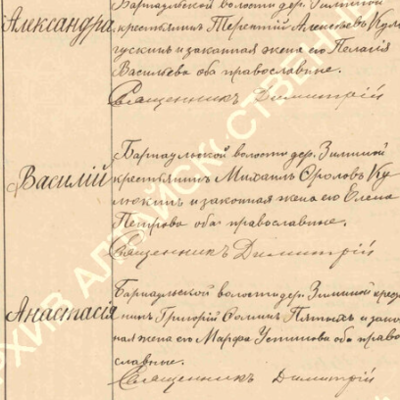 Александра
Барнаульской волости дер. Зиминой
крестьянинъ Терентій Алексѣевъ
и законная жена его Пелагія
Васильева оба православные.
Священникъ Димитрій
Василій
Барнаульской волости дер. Зиминой
крестьянинъ Михаилъ Фроловъ Ку
люкинъ и законная жена его Елена
Петрова оба православные.
Священникъ Димитрій
Анастасія
Барнаульской волости дер. Зиминой крестья
нинъ Григорій Пятыхъ и закон
ная жена его Марфа Устинова оба право
славные.
Священникъ Димитрій